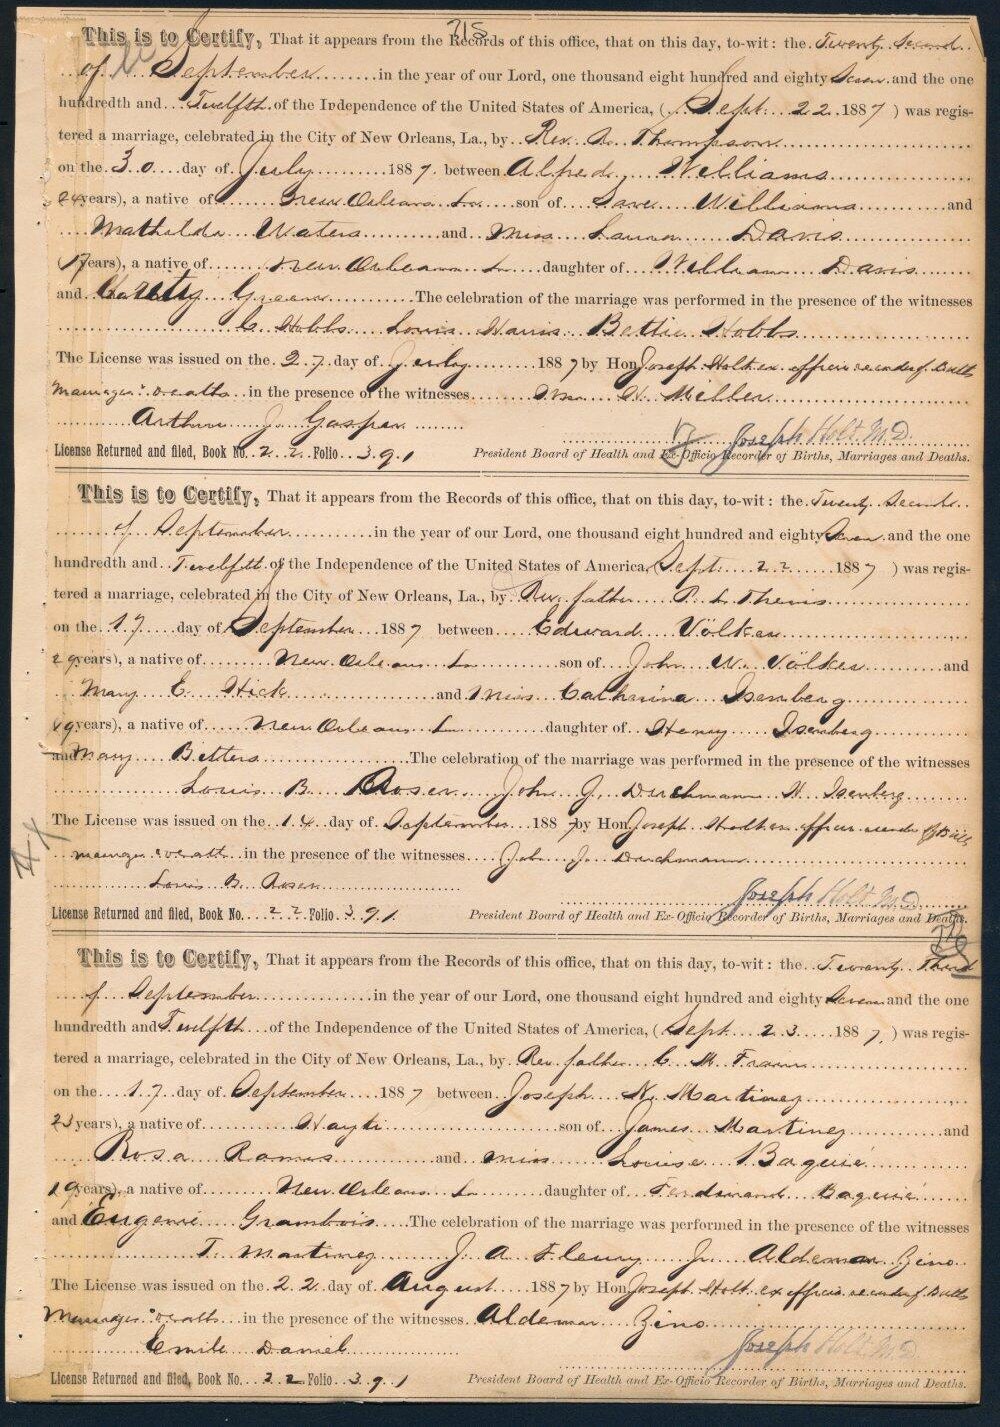 715
This is to Certify, That it appears from the Records of this office, that on this day, to-wit: the Twenty Second
of September in the year of our Lord, one thousand eight hundred and eighty Seven and the one
hundredth and Twelfth of the Independence of the United States of America, (Sept. 22 1887) was regis-
tered a marriage, celebrated in the City of New Orleans, La., by Rev. A. Thompson
on the 30 day of July 1887 between Alfred Williams
24 years), a native of New Orleans La son of Williams and
Mathilda Waters and Miss Laura Davis
(17 years), a native of New Orleans La daughter of William Davis
and Charity Green The celebration of the marriage was performed in the presence of the witnesses
C. Hobbs Louis Harris Bettie Hobbs
The License was issued on the 27 day of July 1887 by Hon Joseph Holt ex officio recorder of Births
marriages & deaths in the presence of the witnesses Wm H. Miller
Arthur J. Gasper
Joseph Holt M.D.
License Returned and filed, Book No. 22 Folio 391 President Board of Health and Ex-Officio Recorder of Births, Marriages and Deaths.
This is to Certify, That it appears from the Records of this office, that on this day, to-wit: the Twenty Second
of September in the year of our Lord, one thousand eight hundred and eighty Seven and the one
hundredth and Twelfth of the Independence of the United States of America, (Sept. 22 1887) was regis-
tered a marriage, celebrated in the City of New Orleans, La., by Rev. father P. L. Thevis
on the 17 day of September 1887 between Edward Völker
29 years), a native of New Orleans La son of John W. Völker and
Mary E. Hick and Miss Catharina Isenberg
19 years), a native of New Orleans La daughter of Henry Isenberg
and Mary Betters The celebration of the marriage was performed in the presence of the witnesses
Louis B. Rosen John J. Duchmann H. Isenberg
The License was issued on the 14 day of September 1887 by Hon Joseph Holt ex officio recorder of Births
marriages & deaths in the presence of the witnesses John J. Duchmann
Louis B. Rosen
Joseph Holt M.D.
License Returned and filed, Book No. 22 Folio 391 President Board of Health and Ex-Officio Recorder of Births, Marriages and Deaths.
This is to Certify, That it appears from the Records of this office, that on this day, to-wit: the Twenty Third
of September in the year of our Lord, one thousand eight hundred and eighty Seven and the one
hundredth and Twelfth of the Independence of the United States of America, (Sept. 23 1887) was regis-
tered a marriage, celebrated in the City of New Orleans, La., by Rev. father C. M.
on the 17 day of September 1887 between Joseph N. Martinez
23 years), a native of Hayti son of James Martinez and
Rosa Ramus and miss Louise Baquié
19 years), a native of New Orleans La daughter of Ferdinand Baquié
and Eugenie Grambois The celebration of the marriage was performed in the presence of the witnesses
T. Martinez J. A. Fleury Jr Aldemar Zino
The License was issued on the 22 day of August 1887 by Hon Joseph Holt ex officio recorder of Births
Marriages & deaths in the presence of the witnesses Aldemar Zino
Emile Daniel
Joseph Holt M D
License Returned and filed, Book No. 22 Folio 391 President Board of Health and Ex-Officio Recorder of Births, Marriages and Deaths.